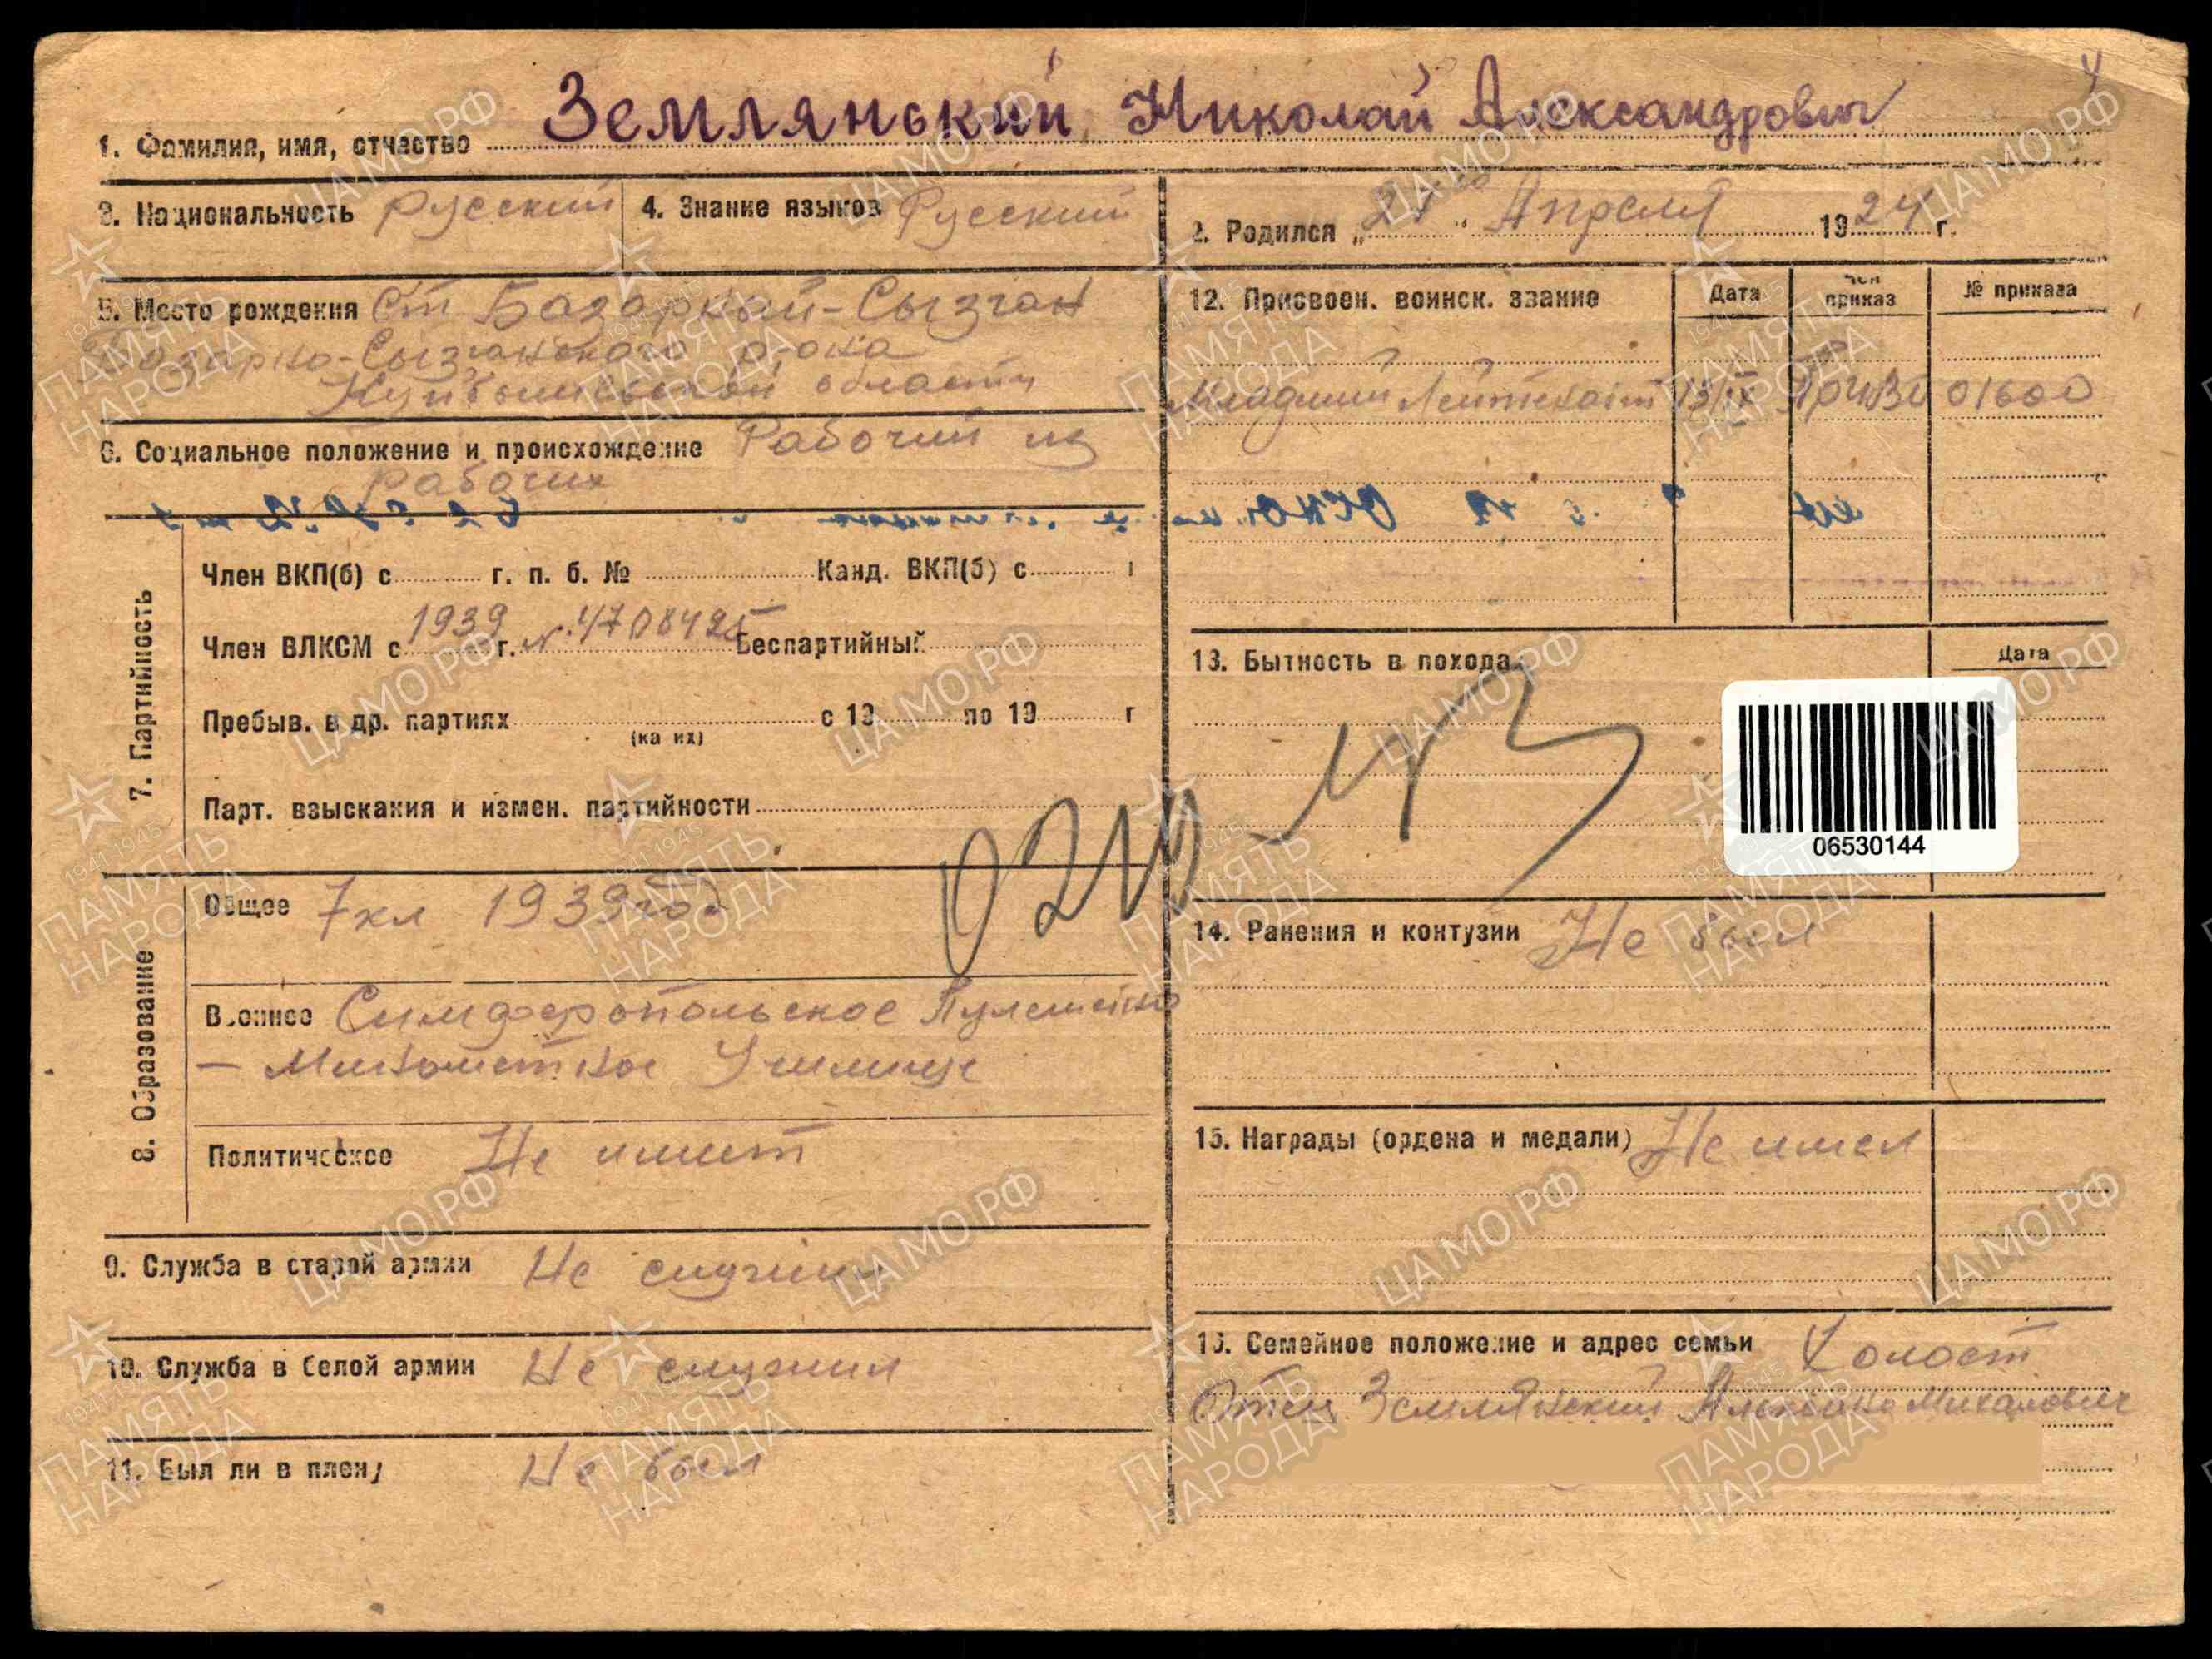 1. Фамилия, имя, отчество Землянький Николай Александрович
3. Национальность Русский
4. Знание языков Русский
2. Родился „21“ Апреля 1924 г.
5. Место рождения Ст Базарный-Сызган
Базарно-Сызганского р-она
Куйбышевской области
6. Социальное положение и происхождение Рабочий из
рабочих
7. Партийность
Член ВКП(б) с г. п. б. № Канд. ВКП(б) с
Член ВЛКСМ с 1939 г. N. 4708425 Беспартийный
Пребыв. в др. партиях с 19 по 19 г
(каких)
Парт. взыскания и измен. партийности
8. Образование
Общее 7 кл 1939 год
Военное Симферопольское Пулеметно
- Минометное Училище
Политическое Не имеет
9. Служба в старой армии Не служил
10. Служба в белой армии Не служил
11. Был ли в плену Не был
12. Присвоен. воинск. звание Дата Чей приказ № приказа
Младший Лейтенант 13/IX 01600
13. Бытность в походах Дата
06530144
14. Ранения и контузии Не был
15. Награды (ордена и медали) Не имел
16. Семейное положение и адрес семьи Холост
Отец Землянский
ЦАМО.РФ
1941 1945
ПАМЯТЬ
НАРОДА